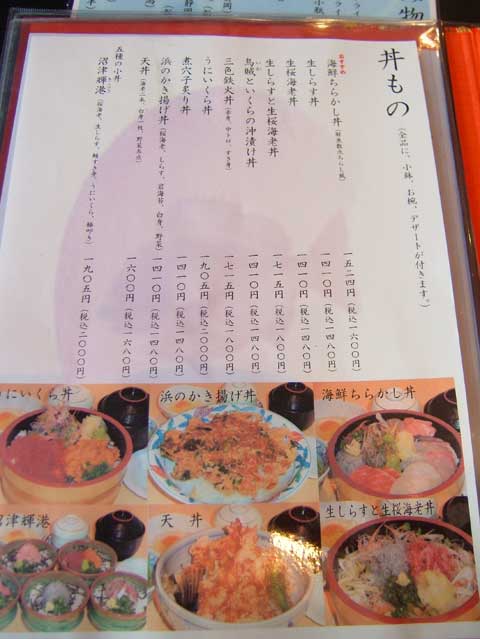 丼もの
(全品に、小鉢、お椀、デザートが付きます。)
おすすめ
海鮮ちらかし丼 一五二四円(税込一六〇〇円)
生しらす丼 一四一〇円(税込一四八〇円)
生桜海老丼 一四一〇円(税込一四八〇円)
生しらすと生桜海老丼 一七一五円(税込一八〇〇円)
烏賊といくらの沖漬け丼 一四一〇円(税込一四八〇円)
三色鉄火丼(赤身、中トロ、すき身) 一七一五円(税込一八〇〇円)
うにいくら丼 一九〇五円(税込二〇〇〇円)
煮穴子炙り丼 一四一〇円(税込一四八〇円)
浜のかき揚げ丼(桜海老、しらす、岩海苔、白身、野菜) 一四一〇円(税込一四八〇円)
天丼(海老二本、白身一枚、野菜五点) 一六〇〇円(税込一六八〇円)
五種の小丼
沼津輝港 一九〇五円(税込二〇〇〇円)
うにいくら丼
浜のかき揚げ丼
海鮮ちらかし丼
沼津輝港
天丼
生しらすと生桜海老丼